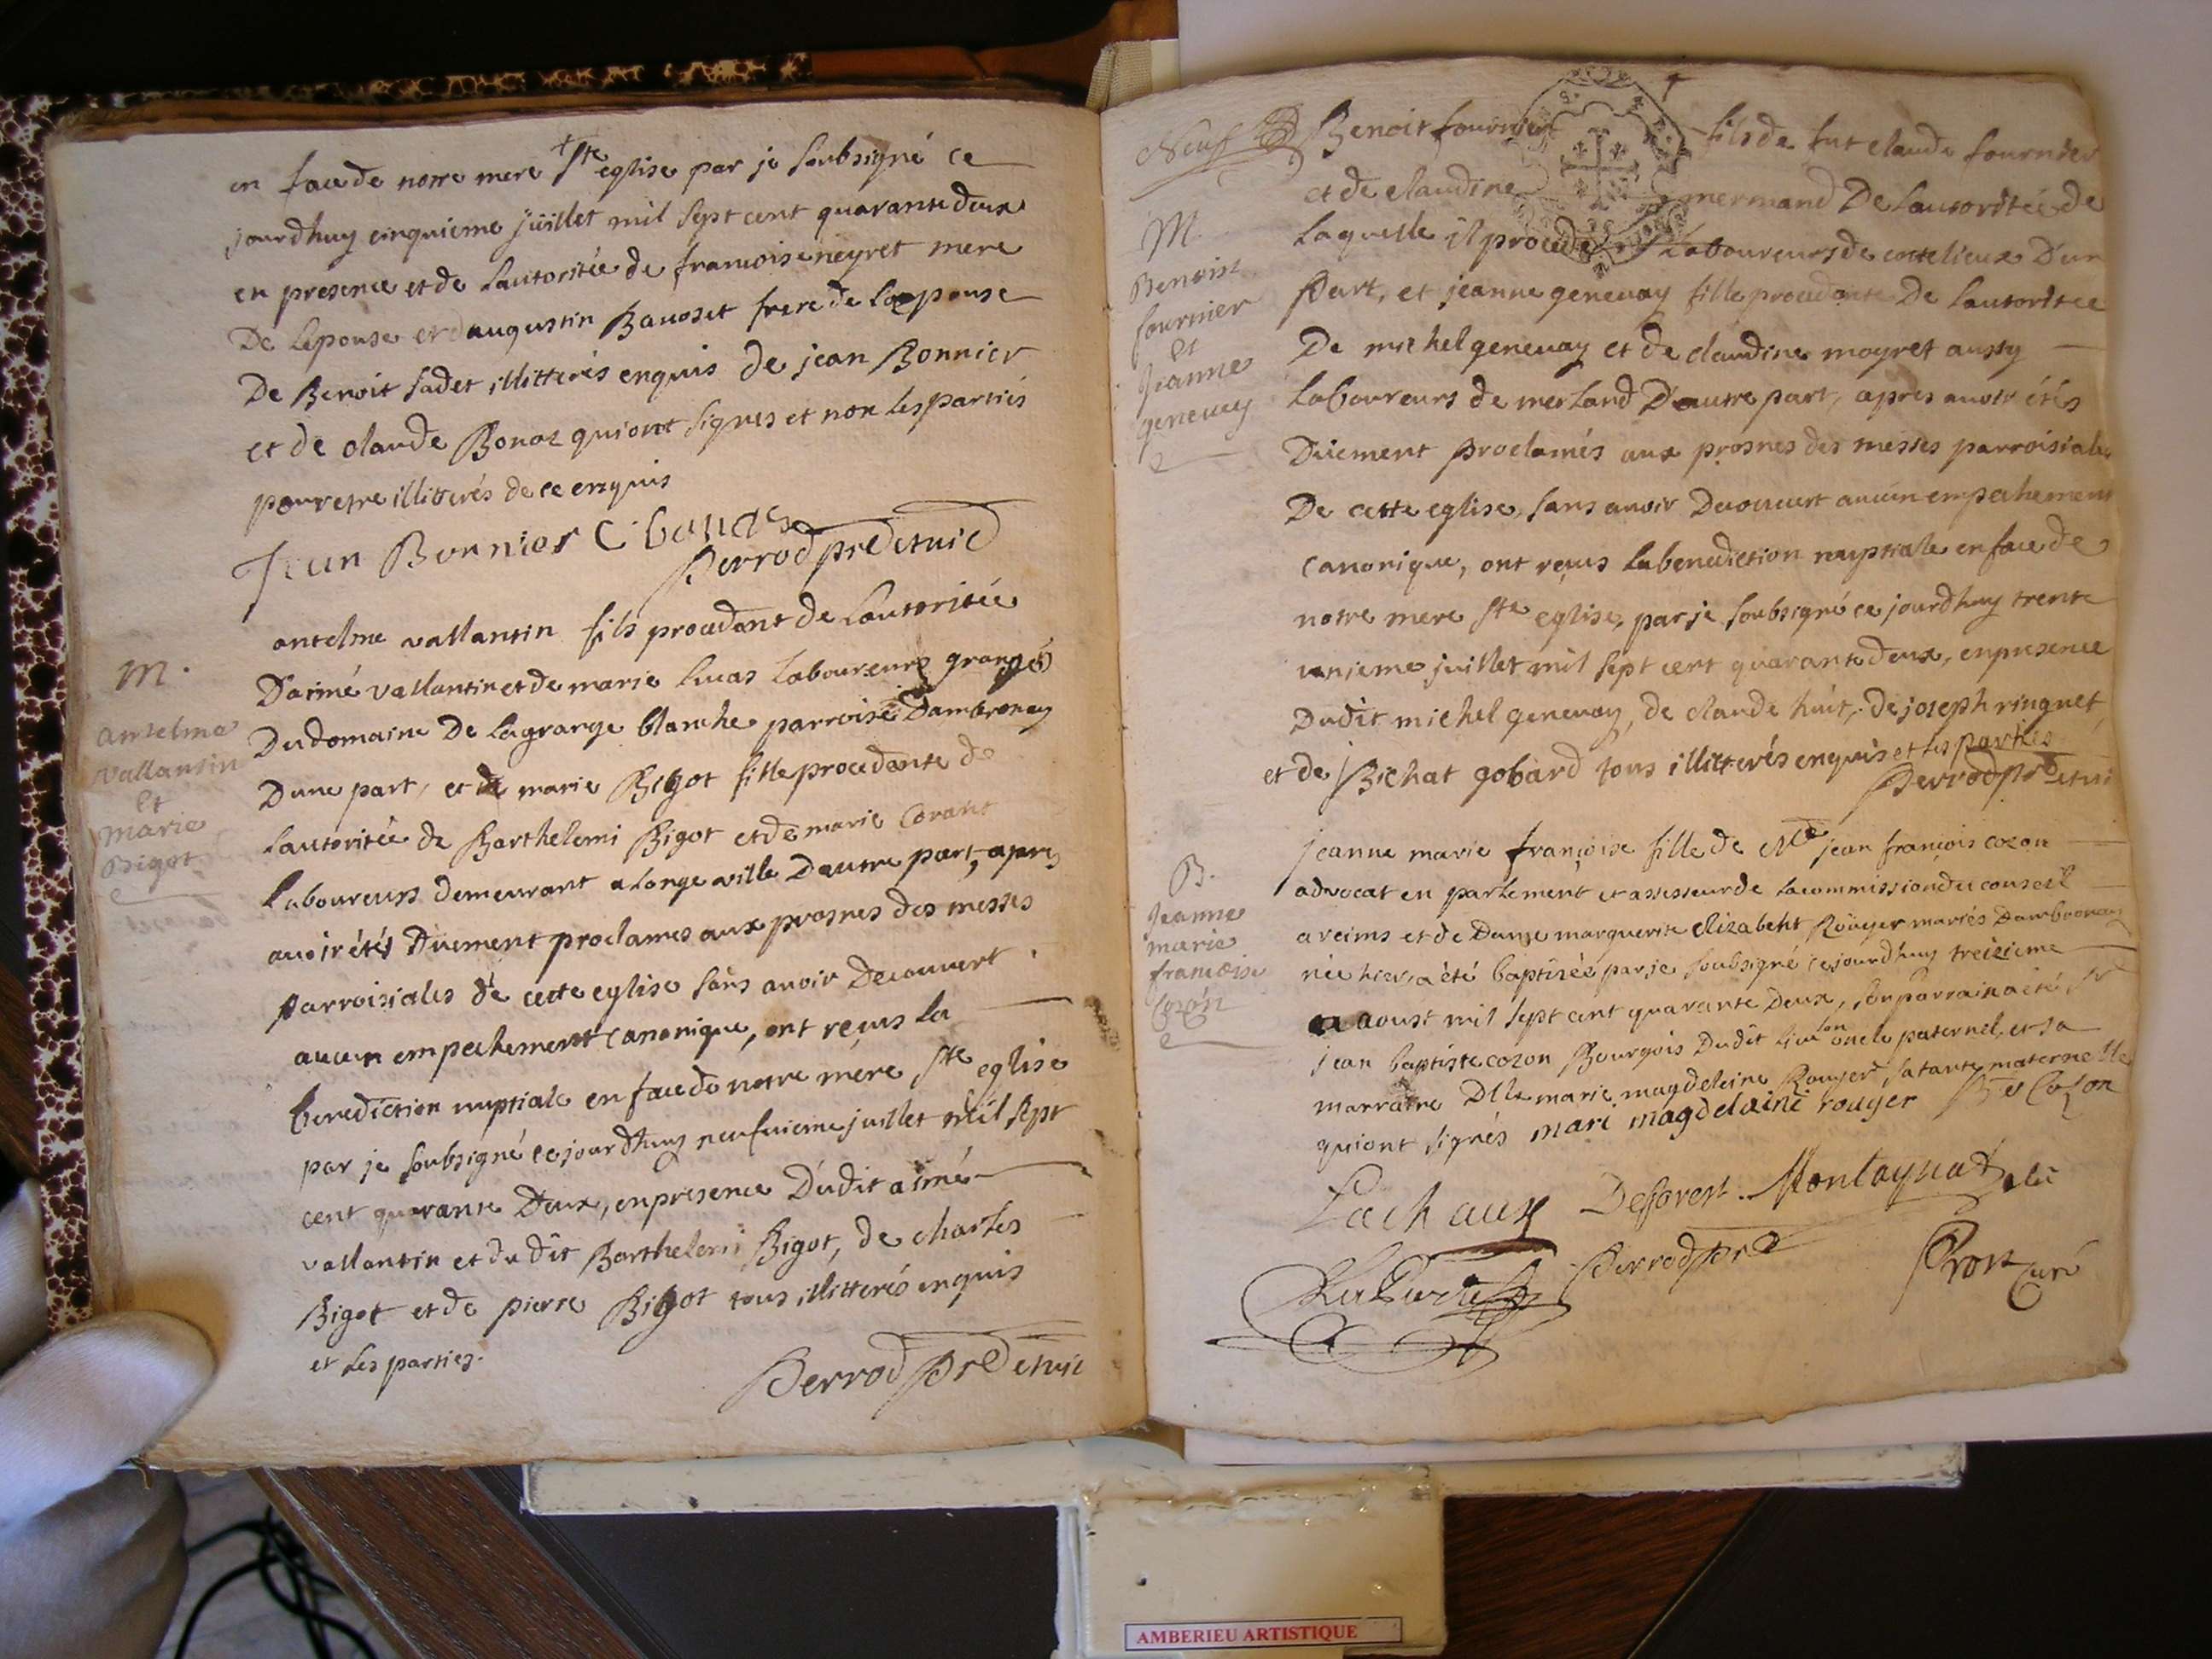 en face de notre mere Ste eglise par je soubsigné ce
jourdhuy cinquieme juillet mil sept cent quarante deux
en presence et de lautoritée de francoise neyret mere
De lepouse et daugustin Bauoset frere de lepouse
De Benoit sadet illitterés enquis de jean Bonnier
et de claude Bonaz qui ont signes et non les partiés
pour etre illitterés de ce enquis
Jean Bonnier C bonaz
Perrod pre et vic
M.
antelme
vallantin
et
marie
Bigot
antelme vallantin fils procedant de lautoritée
Daimé vallantin et de marie lucas laboureurs grangés
Du domaine De lagrange blanche parroise Dambronay
Dune part, et marie Bigot fille procedante de
lautoritée de Barthelemi Bigot et de marie Corant
laboureurs demeurant a longeville Dautre part, apres
auoir étés Duement proclames aux prosnes des messes
parroisiales de cette eglise sans auoir Decouuert
aucun empechement canonique, ont reçus la
benediction nuptiale en face de notre mere Ste eglise
par je soubsigné ce jourdhuy neufuieme juillet mil sept
cent quarante Deux, en presence Dudit aimé
vallantin et dudit Barthelemi Bigot, de charles
Bigot et de pierre Bigot tous illitterés enquis
et les parties.
Perrod Pre et vic
Neuf
M.
Benoist
fournier
et
jeanne
geneuay
Benoit fournier fils de fut claude fournier
et de claudine mermand De lautoritée de
laquelle il procede laboureurs de cotelieux Dune
part, et jeanne geneuay fille procedante De lautoritée
De michel geneuay et de claudine moyret aussy
laboureurs de merland Dautre part, apres auoir étés
Duement proclamés aux prosnes des messes parroisiales
De cette eglise, sans auoir Decouuert aucun empechement
canonique, ont reçus la benediction nuptiale en face de
notre mere Ste eglise, par je soubsigné ce jourdhuy trente
unieme juillet mil sept cent quarante deux, en presence
Dudit michel geneuay, de claude huit, de joseph ringuet
et de Bichat gobard tous illitterés enquis et les parties
Perrod Pre et vic
B.
jeanne
marie
francoise
Cozon
jeanne marie françoise fille de Me jean françois cozon
advocat en parlement et assesseur de la commission du conseil
a reims et de Dame marguerite elizabeht Rouyer mariés Dambronay
née hier, a été baptisée par je soubsigné ce jourdhuy treizieme
aoust mil sept cent quarante Deux, son parrain a été Sr
jean baptiste cozon Bourgois Dudit lieu son oncle paternel et sa
marraine Dlle marie magdeleine Rouyer sa tante maternelle
qui ont signés mari magdelaine rouyer Cozon
Lachaux Desforest Montagnat elu
Perrod Pre
Pron Curé
AMBERIEU ARTISTIQUE